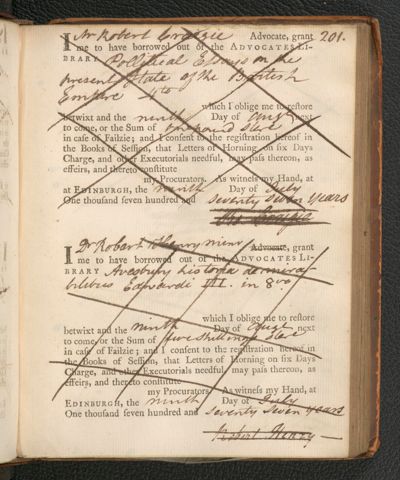 201.
I Mr Robert Craigie Advocate, grant
me to have borrowed out of the ADVOCATES LI-
BRARY Political Essays on the
present State of the British
Empire 4to
which I oblige me to reſtore
betwixt and the ninth Day of Augt next
to come, or the Sum of pound Ster
in caſe of Failzie; and I conſent to the regiſtration hereof in
the Books of Seſſion, that Letters of Horning on ſix Days
Charge, and other Executorials needful, may paſs thereon, as
effeirs, and thereto conſtitute
my Procurators. As witneſs my Hand, at
at EDINBURGH, the ninth Day of July
One thouſand ſeven hundred and Seventy Seven years
I Dr Robert Henry minr Advocate, grant
me to have borrowed out of the ADVOCATES LI-
BRARY Avesbury historia de mirabi-
libus Edvardi III. in 8vo
which I oblige me to reſtore
betwixt and the ninth Day of Augt next
to come, or the Sum of five shillings Ster
in caſe of Failzie; and I conſent to the regiſtration hereof in
the Books of Seſſion, that Letters of Horning on ſix Days
Charge, and other Executorials needful, may paſs thereon, as
effeirs, and thereto conſtitute
my Procurators. As witneſs my Hand, at
EDINBURGH, the ninth Day of July
One thouſand ſeven hundred and Seventy Seven years
Robert Henry